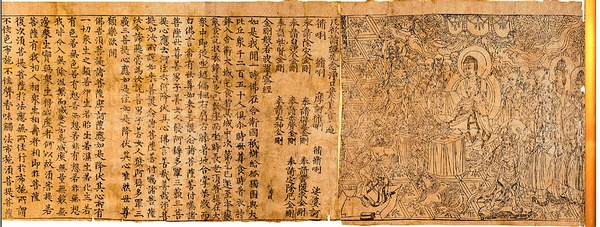 凡欲讀經先念淨口業真言一遍
脩唎 脩唎 摩訶脩唎 脩脩唎 娑婆訶
奉請除災金剛 奉請辟毒金剛
奉請黃隨求金剛 奉請白淨水金剛
奉請赤聲金剛 奉請定除厄金剛
奉請紫賢金剛 奉請大神金剛
金剛般若波羅蜜經
如是我聞一時佛在舍衛國祇樹給孤獨園與大
比丘眾千二百五十人俱爾時世尊食時著衣持
鉢入舍衛大城乞食於其城中次第乞已還至本處
飯食訖收衣鉢洗足已敷座而坐時長老須菩提在大
眾中即從座起偏袒右肩右膝著地合掌恭敬而
白佛言希有世尊如來善護念諸菩薩善付囑諸
菩薩世尊善男子善女人發阿耨多羅三藐三菩
提心應云何住云何降伏其心佛言善哉善哉須菩
提如汝所說如來善護念諸菩薩善付囑諸菩薩
汝今諦聽當為汝說善男子善女人發阿耨多羅三
藐三菩提心應如是住如是降伏其心唯然世尊
願樂欲聞
佛告須菩提諸菩薩摩訶薩應如是降伏其心所有
一切眾生之類若卵生若胎生若濕生若化生若
有色若無色若有想若無想若非有想非無想
我皆令入無餘涅槃而滅度之如是滅度無量無數無
邊眾生實無眾生得滅度者何以故須菩提若
菩薩有我相人相眾生相壽者相即非菩薩
復次須菩提菩薩於法應無所住行於布施所謂
不住色布施不住聲香味觸法布施須菩提菩薩